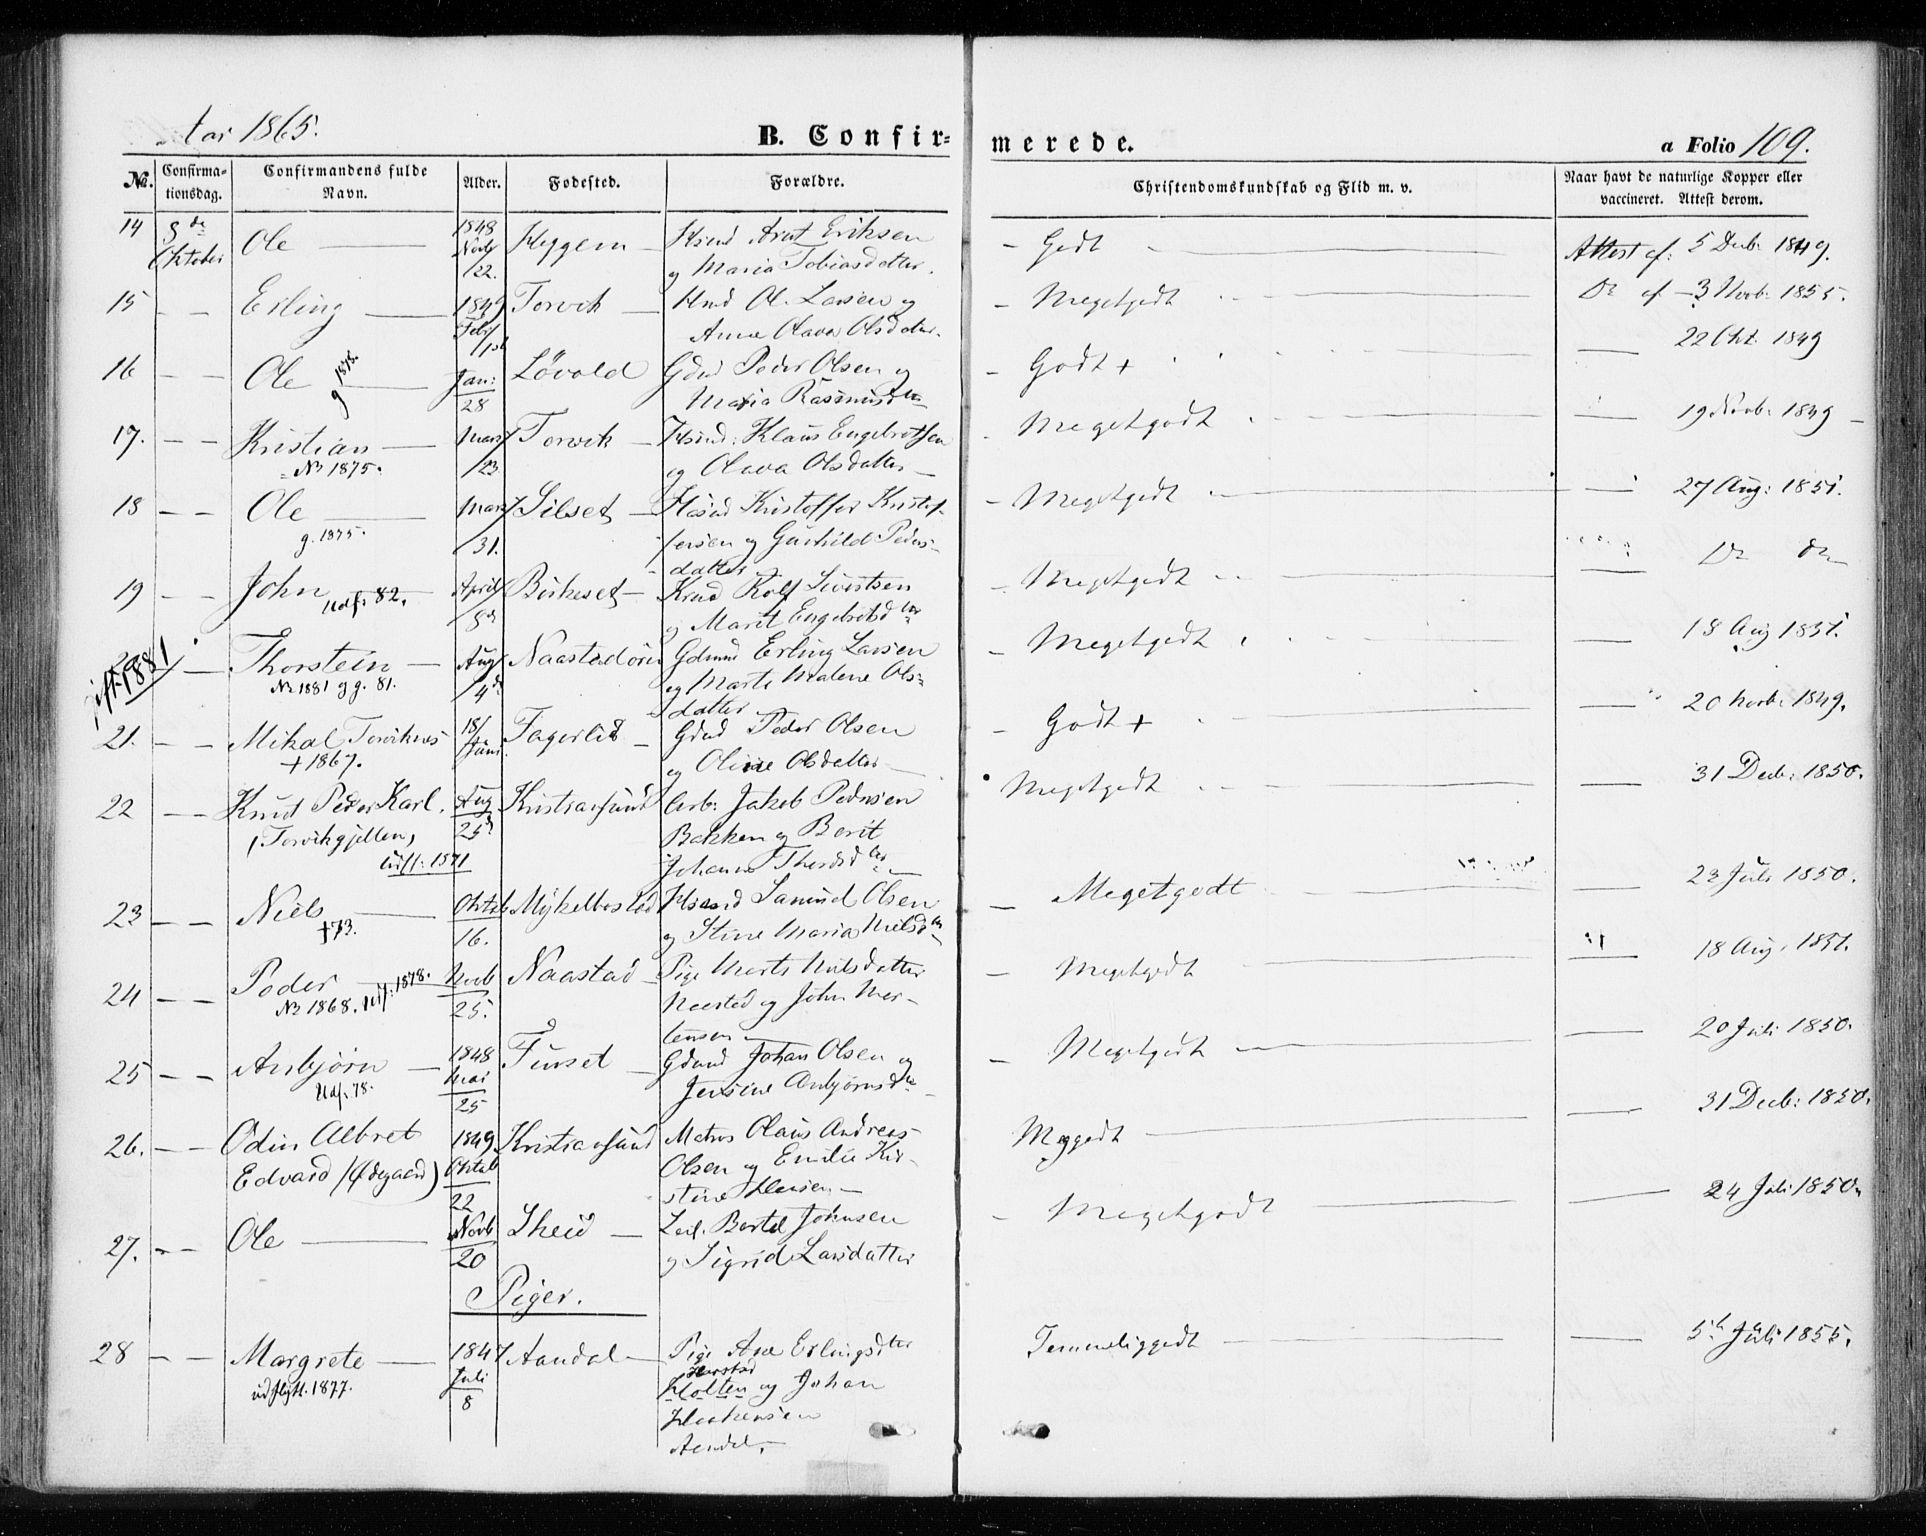 Aar 1865.
B. Confirmerede.
a Folio 109.
No. Confirmationsdag. Confirmandens fulde Navn. Alder. Fødested. Forældre. Christendomskundskab og Flid m. v. Naar havt de naturlige Kopper eller vaccineret. Attest derom.
14 8de Oktober Ole 1848 Novb /22. Heggem
Arnt Eriksen
og Maria Tobiasdatter.
- Godt Attest af: 5 Decb: 1849.
15 - - Erling 1849 Feb /1st Torvik
Ol. Larsen og
Anne Olava Olsdatter.
- Megetgodt Do af 3 Novb: 1855.
16 - - Ole g 1878. Jan: 28 Løvold
Gdmd Peder Olsen og
Maria Rasmusdtr
- Godt + 22 Okt. 1849
17. - - Kristian Mars /23 Torvik
No 1875.
Husmd: Klaus Engebretsen
og Olava Olsdatter
Megetgodt 19 Novb: 1849
18 - - Ole Mars /31. Silset
g. 1875.
Kristoffer Kristof-
fersen og Gunhild Peders-
datter
- Megetgodt 27 Aug: 1851.
19 - - John Udf: 82. April /8de Birkeset
Rolf Sivertsen
og Marit Engebretsdtr
- Megetgodt Do do
Gift 1881
- Thorstein Aug /4de Naastadøren
No 1881 og g. 81.
Gdmd Erling Larsen
og Marte Malene Ols-
datter
- Megetgodt 18 Aug 1851.
21. - - Mikal Torviknes 18/ Juni Fagerlid
+ 1867.
Gdmd Peder Olsen
og Oline Olsdatter
- Godt + 20 Novb: 1849.
22 - - Knut Peder Karl. Aug 25de Kristiansund
(Torvikgjellen,
Udfl: 1871
Arb: Jakob Pedersen
Bakken og Berit
Johanne Thordsdtr
Megetgodt 31 Decb: 1850.
23 - - Niels Oktob 16. Mykelbostad
+ 73.
Samuel Olsen
og Stine Maria Nielsdtr
- Megetgodt 23 Juli 1850.
24 - - Peder Novb 25. Naastad
No 1868. Udf: 1878.
Pige Marte Nilsdatter
Naastad og John Mor-
tensen
- Megetgodt 18 Aug. 1851.
25 - - Anbjørn 1848 Mai 25 Furset
Udf: 78.
Gdmd Johan Olsen og
Jensine Anbjørnsdtr
- Megetgodt 20 Juli 1850.
26. - - Odin Albret 1849 Oktob 22 Kristiansund
Edvard (Ødegaard)
Matros Olaus Andreas
Olsen og Emilie Kir-
stine Hansen
Meggodt 31 Decb: 1850.
27. - - Ole Novb 20 Sheid
Bertel Johnsen
og Sigrid Larsdatter
- Megetgodt 24 Juli 1850.
Piger.
28 - - Margrete 1847 Juli 8 Aandal
udflytt. 1877.
Pige Ane Erlingsdter
Harstad
Holten og Johan
Haakensen
Aandal.
Temmeliggodt 5te Juli 1855.